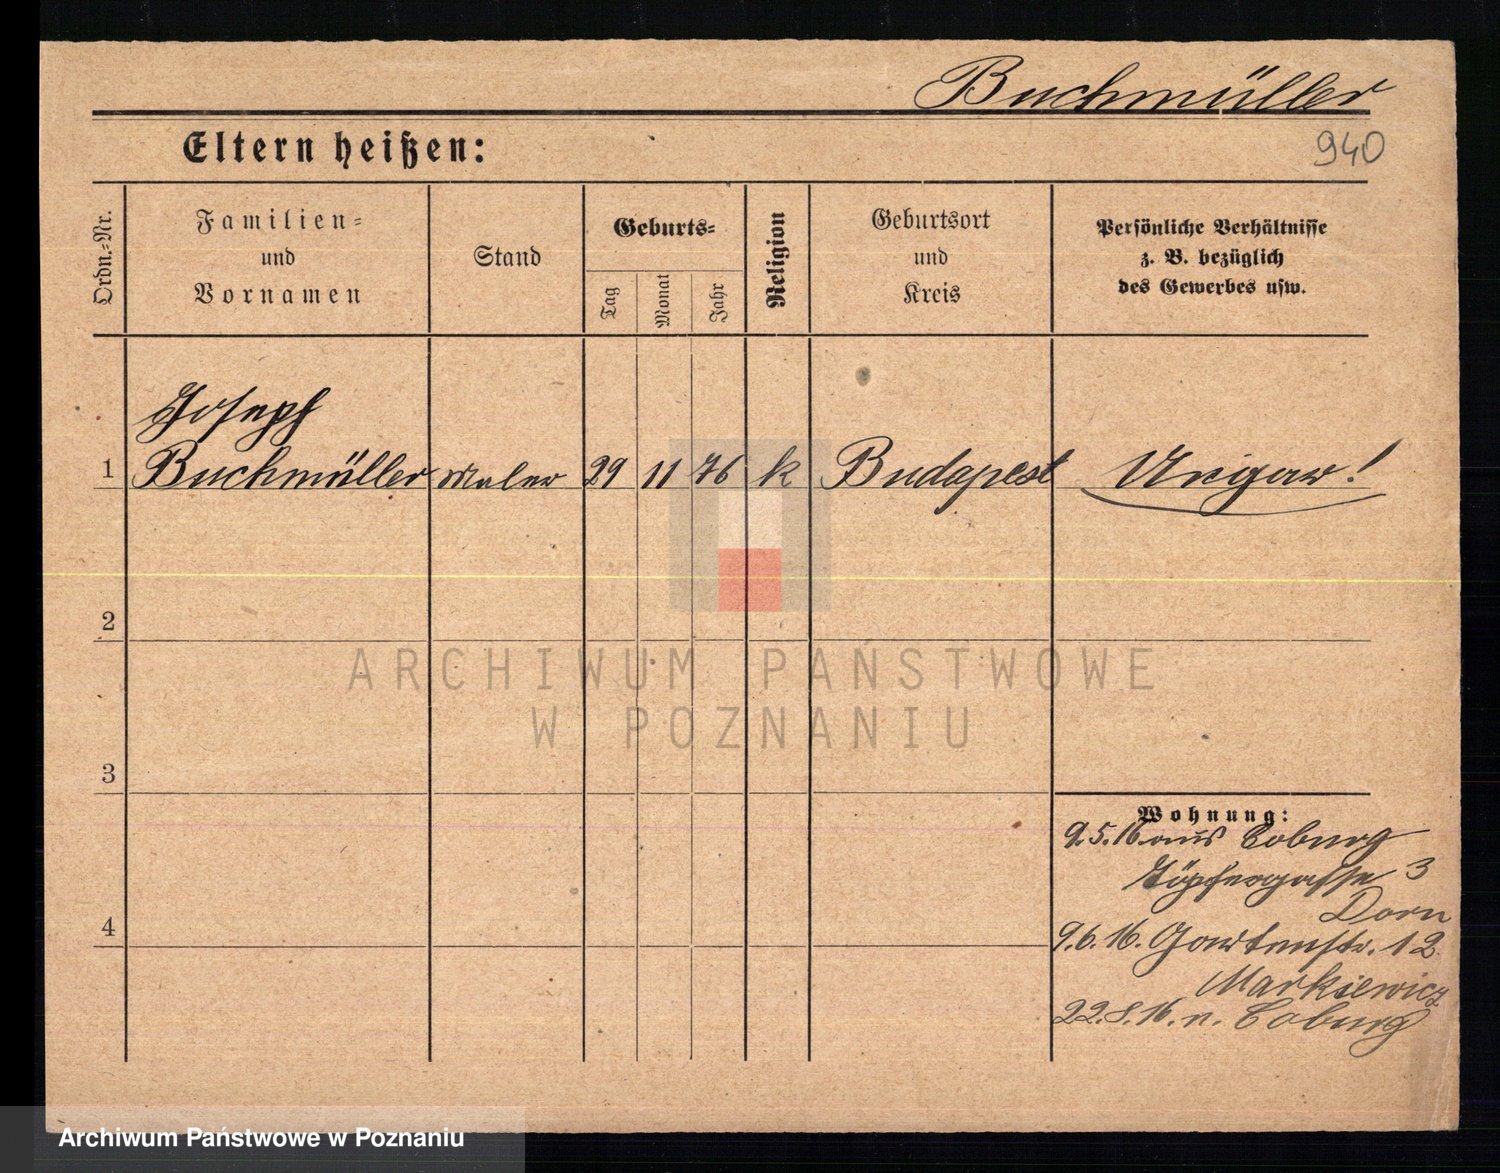 Buchmüller
Eltern heißen:
940
Ordn.-Nr.
Familien-
und
Vornamen
Stand
Geburts-
Tag
Monat
Jahr
Religion
Geburtsort
und
Kreis
Persönliche Verhältnisse
z. B. bezüglich
des Gewerbes usw.
Joseph
1 Buchmüller Maler 29 11 76 k Budapest Ungar!
2
ARCHIWUM PAŃSTWOWE
W POZNANIU
3
Wohnung:
9.5.16 aus Coburg
Töpfergasse 3
Dorn
4
9.6.16. Gartenstr. 12
Markiewicz
22.8.16. n. Coburg
Archiwum Państwowe w Poznaniu